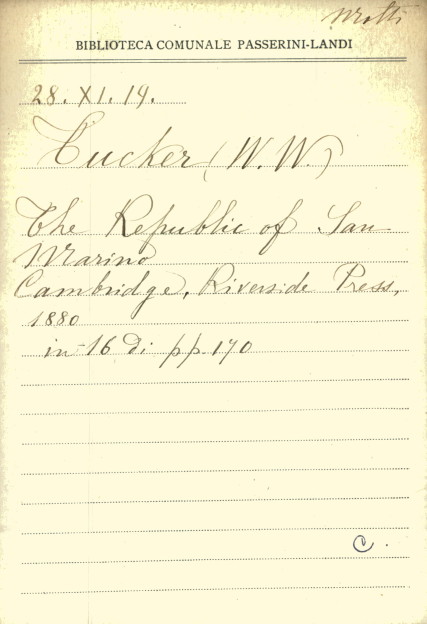 BIBLIOTECA COMUNALE PASSERINI-LANDI
28. XI. 19.
Tucker (W. W.)
The Republic of San
Marino
Cambridge, Riverside Press,
1880
in-16 di pp. 170
C.